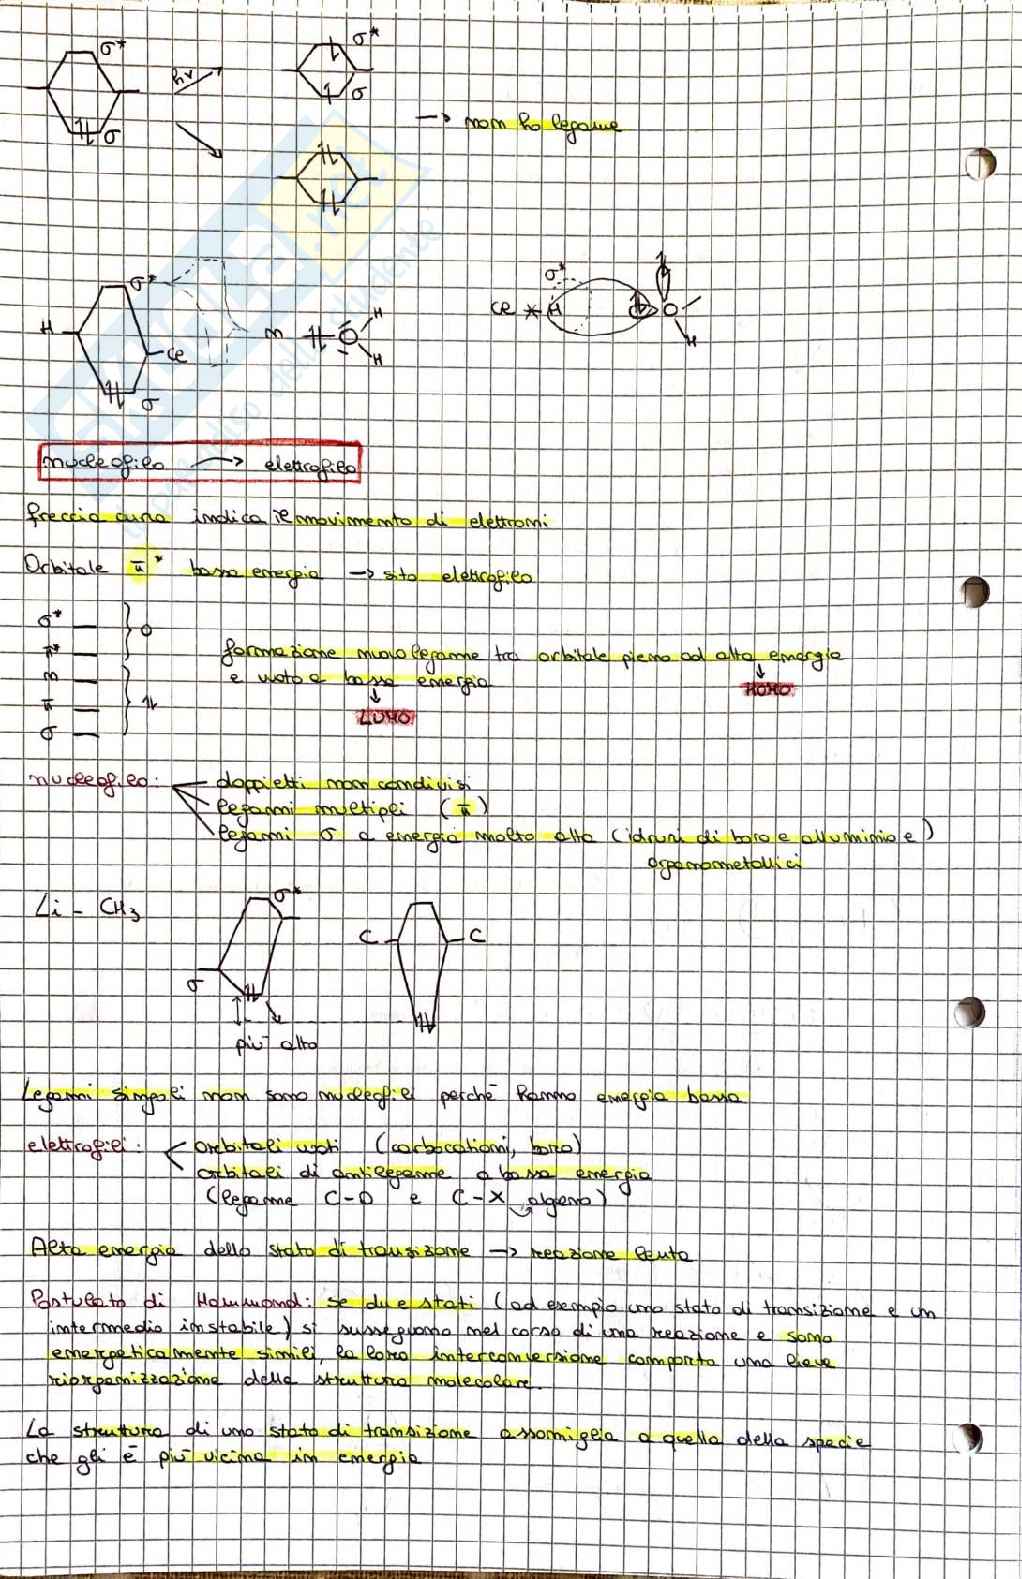 σ*
hν
σ
σ*
σ
→ non ho legame
σ*
H
Cl
σ
n
O
H
H
σ*
Cl * H
O
H
nucleofilo → elettrofilo
freccia curva indica il movimento di elettroni
Orbitale π* bassa energia → sito elettrofilo
σ*
π* 0
n
π
σ
formazione nuovo legame tra orbitale pieno ad alta energia
e vuoto a bassa energia
HOMO
LUMO
nucleofilo: doppietti non condivisi
legami multipli (π)
legami σ a energia molto alta (idruri di boro e alluminio e)
organometallici
Li - CH3
σ*
σ
C C
più alto
Legami singoli non sono nucleofili perché hanno energia bassa
elettrofili: orbitali vuoti (carbocationi, boro)
orbitali di antilegame a bassa energia
(legame C-O e C-X alogeno)
Alta energia dello stato di transizione → reazione lenta
Postulato di Hammond: se due stati (ad esempio uno stato di transizione e un
intermedio instabile) si susseguono nel corso di una reazione e sono
energeticamente simili, la loro interconversione comporta una lieve
riorganizzazione della struttura molecolare.
La struttura di uno stato di transizione assomiglia a quella della specie
che gli è più vicina in energia